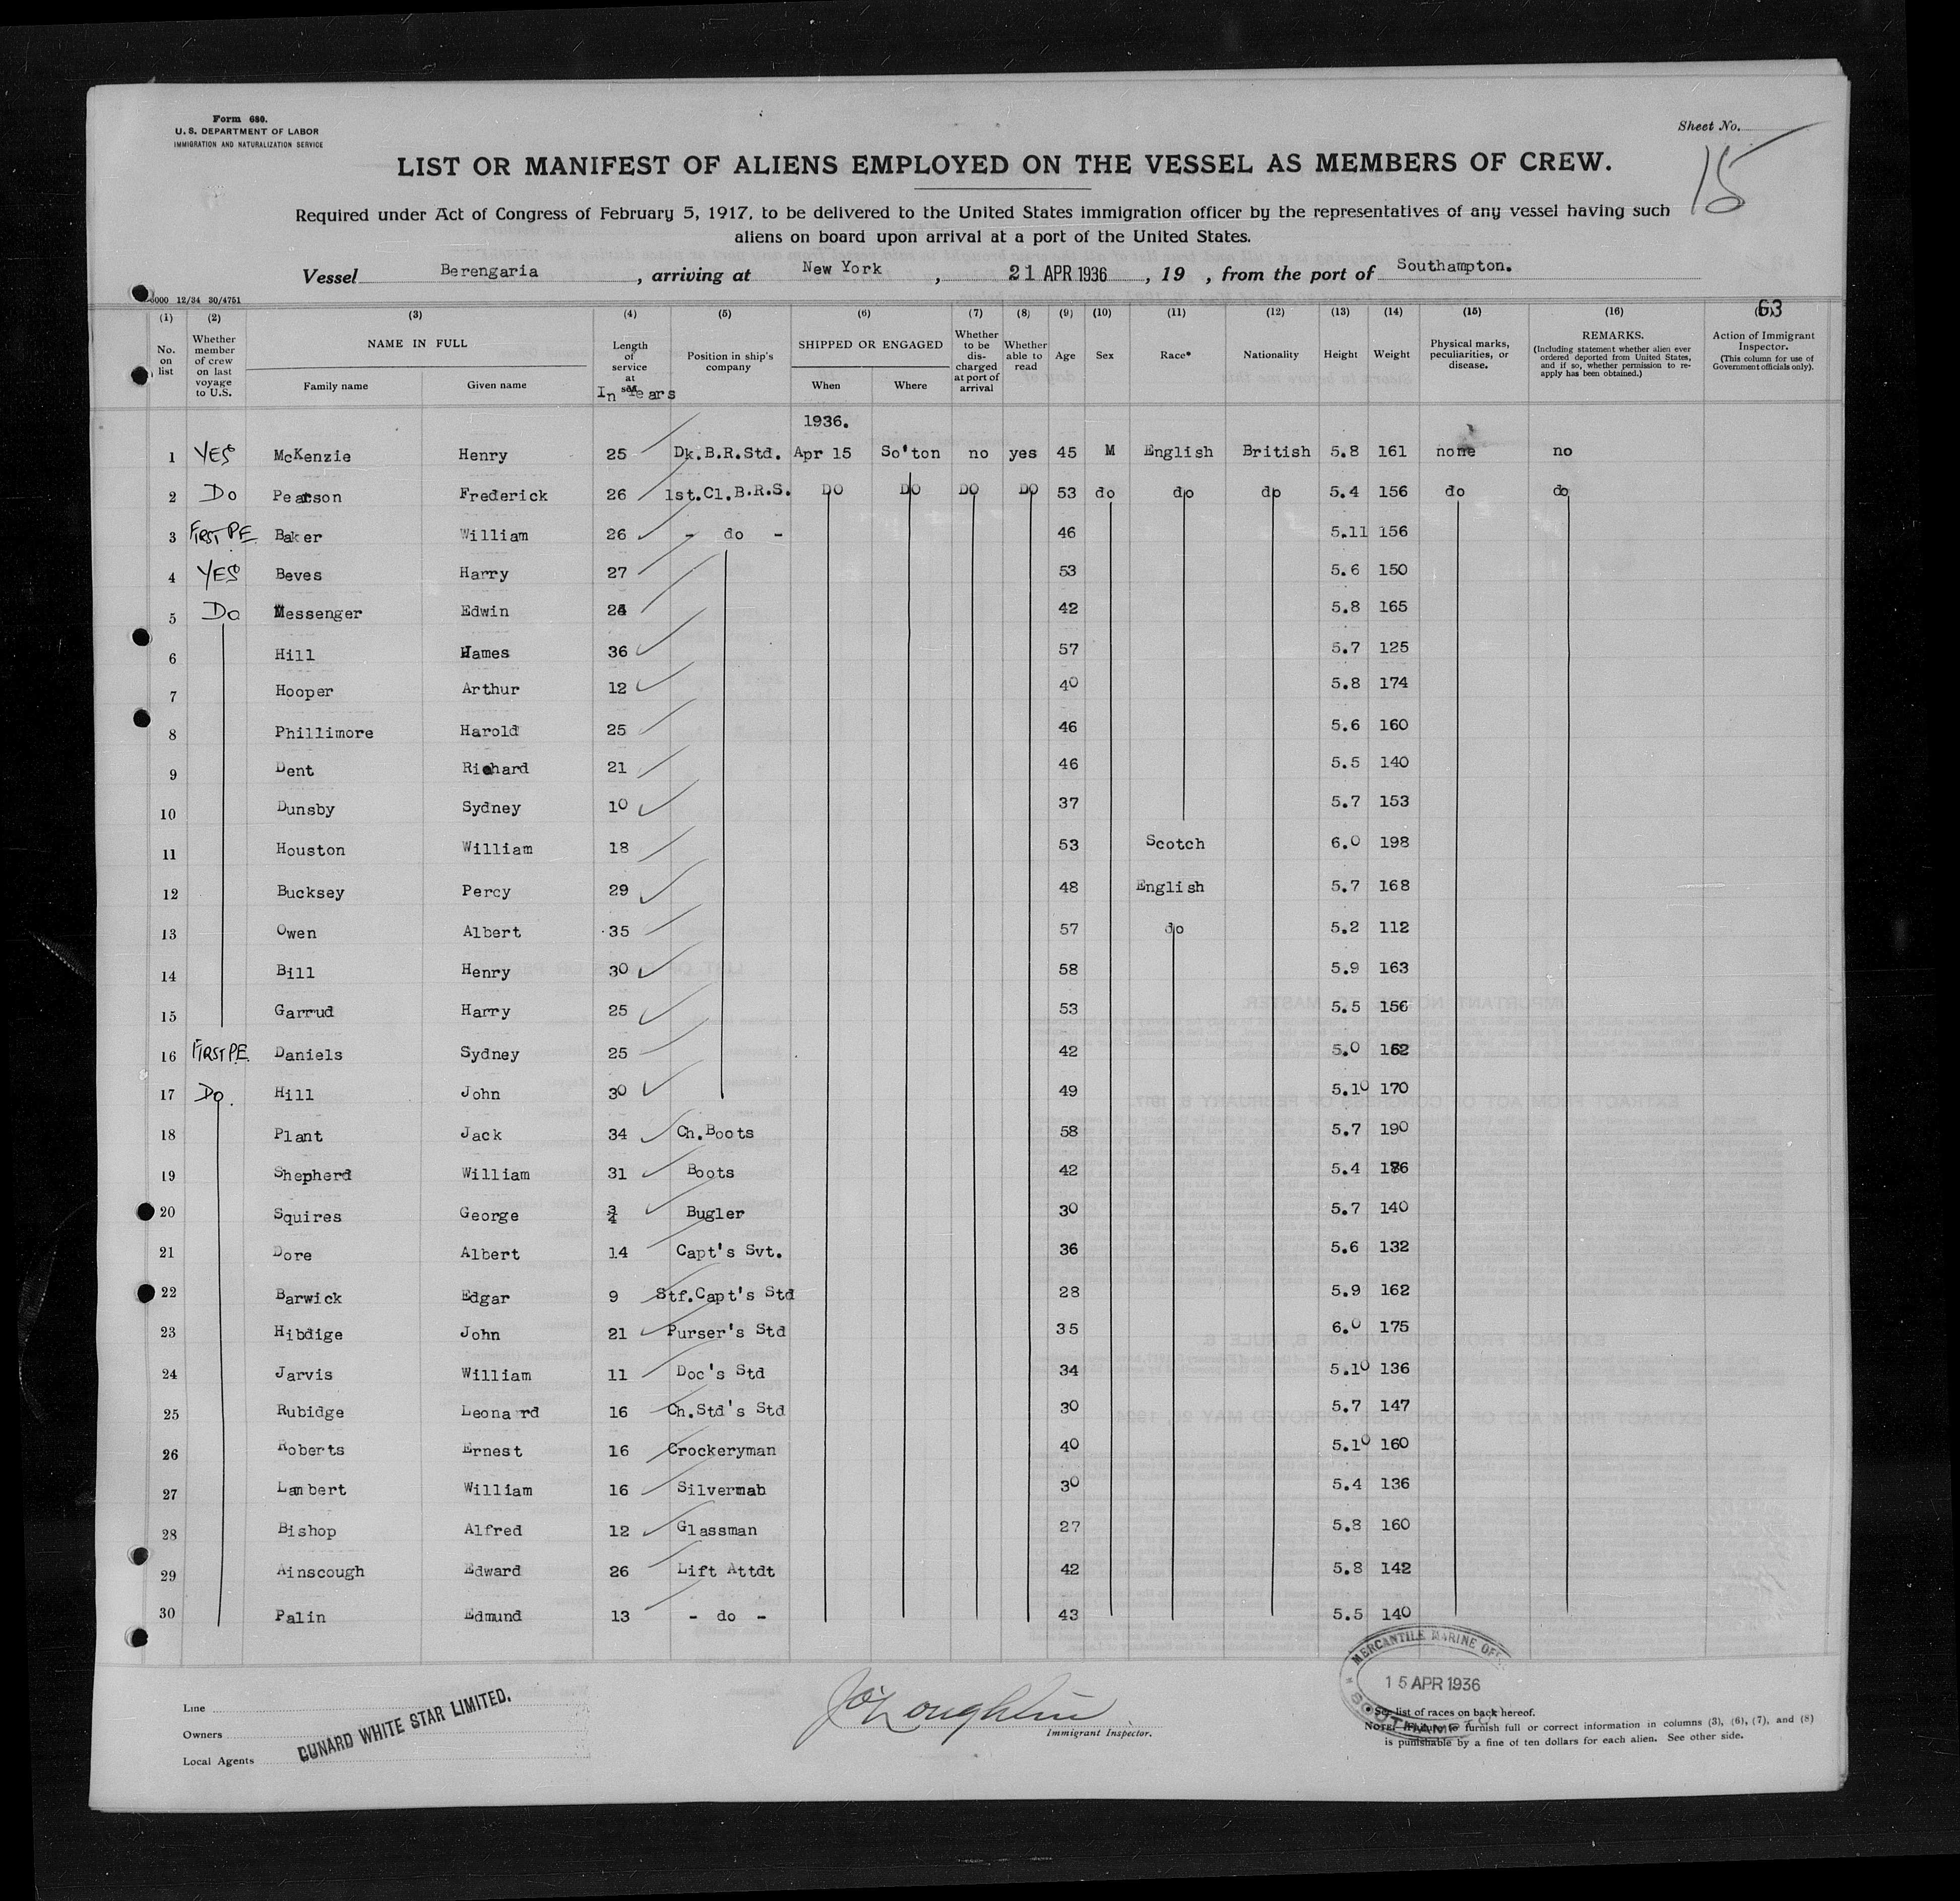 Form 680.
U. S. DEPARTMENT OF LABOR
IMMIGRATION AND NATURALIZATION SERVICE
Sheet No.
15
LIST OR MANIFEST OF ALIENS EMPLOYED ON THE VESSEL AS MEMBERS OF CREW.
Required under Act of Congress of February 5, 1917, to be delivered to the United States immigration officer by the representatives of any vessel having such
aliens on board upon arrival at a port of the United States.
Vessel Berengaria, arriving at New York, 21 APR 1936, 19 , from the port of Southampton.
12/34 30/4751
63
(1) (2) (3) (4) (5) (6) (7) (8) (9) (10) (11) (12) (13) (14) (15) (16)
No. on list
Whether member of crew on last voyage to U.S.
NAME IN FULL
Family name Given name
Length of service at sea
In Years
Position in ship's company
SHIPPED OR ENGAGED
When Where
Whether to be discharged at port of arrival
Whether able to read
Age Sex Race* Nationality Height Weight
Physical marks, peculiarities, or disease.
REMARKS.
(Including statement whether alien ever ordered deported from United States, and if so, whether permission to reapply has been obtained.)
Action of Immigrant Inspector.
(This column for use of Government officials only).
1936.
1 YES McKenzie Henry 25 Dk.B.R.Std. Apr 15 So'ton no yes 45 M English British 5.8 161 none no
2 Do Pearson Frederick 26 1st.Cl.B.R.S. DO DO DO DO 53 do do do 5.4 156 do do
3 FIRST P.E. Baker William 26 - do - 46 5.11 156
4 YES Beves Harry 27 53 5.6 150
5 Do Messenger Edwin 42 5.8 165
6 Hill Hames 36 57 5.7 125
7 Hooper Arthur 12 40 5.8 174
8 Phillimore Harold 25 46 5.6 160
9 Dent Richard 21 46 5.5 140
10 Dunsby Sydney 10 37 5.7 153
11 Houston William 18 53 Scotch 6.0 198
12 Bucksey Percy 29 48 English 5.7 168
13 Owen Albert 35 57 do 5.2 112
14 Bill Henry 30 58 5.9 163
15 Garrud Harry 25 53 5.5 156
16 FIRST P.E. Daniels Sydney 25 42 5.0
17 Do. Hill John 30 49 5.10 170
18 Plant Jack 34 Ch.Boots 58 5.7 190
19 Shepherd William 31 Boots 42 5.4
20 Squires George 3/4 Bugler 30 5.7 140
21 Dore Albert 14 Capt's Svt. 36 5.6 132
22 Barwick Edgar 9 Stf.Capt's Std 28 5.9 162
23 Hibdige John 21 Purser's Std 35 6.0 175
24 Jarvis William 11 Doc's Std 34 5.10 136
25 Rubidge Leonard 16 Ch.Std's Std 30 5.7 147
26 Roberts Ernest 16 Crockeryman 40 5.10 160
27 Lambert William 16 Silvermab 30 5.4 136
28 Bishop Alfred 12 Glassman 27 5.8 160
29 Ainscough Edward 26 Lift Attdt 42 5.8 142
30 Palin Edmund 13 - do - 43 5.5 140
MERCANTILE MARINE OFF
15 APR 1936
SOUTHAMPTON
Line
Owners
Local Agents
CUNARD WHITE STAR LIMITED.
Immigrant Inspector.
* See list of races on back hereof.
NOTE: Failure to furnish full or correct information in columns (3), (6), (7), and (8)
is punishable by a fine of ten dollars for each alien. See other side.